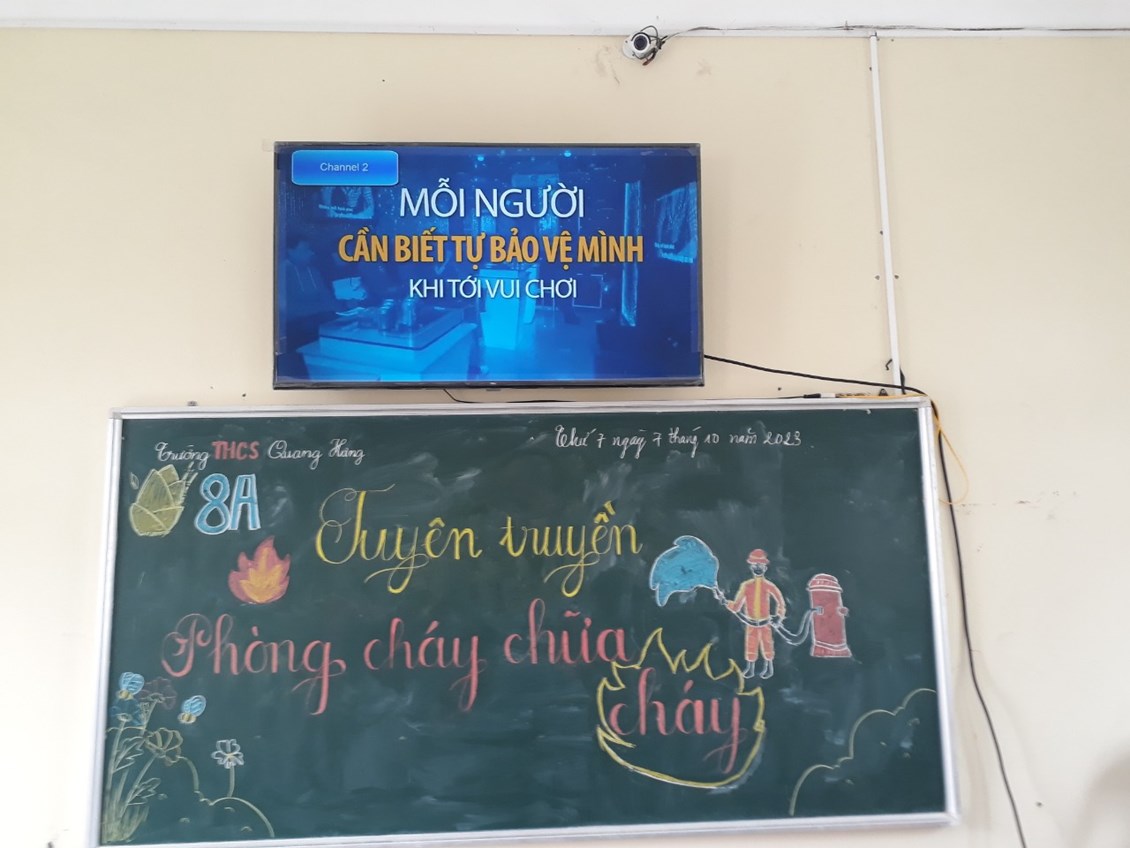 Channel 2
MỖI NGƯỜI
CẦN BIẾT TỰ BẢO VỆ MÌNH
KHI TỚI VUI CHƠI
Trường THCS Quang Hưng
Thứ 7 ngày 7 tháng 10 năm 2023
8A
Tuyên truyền
Phòng cháy chữa
cháy